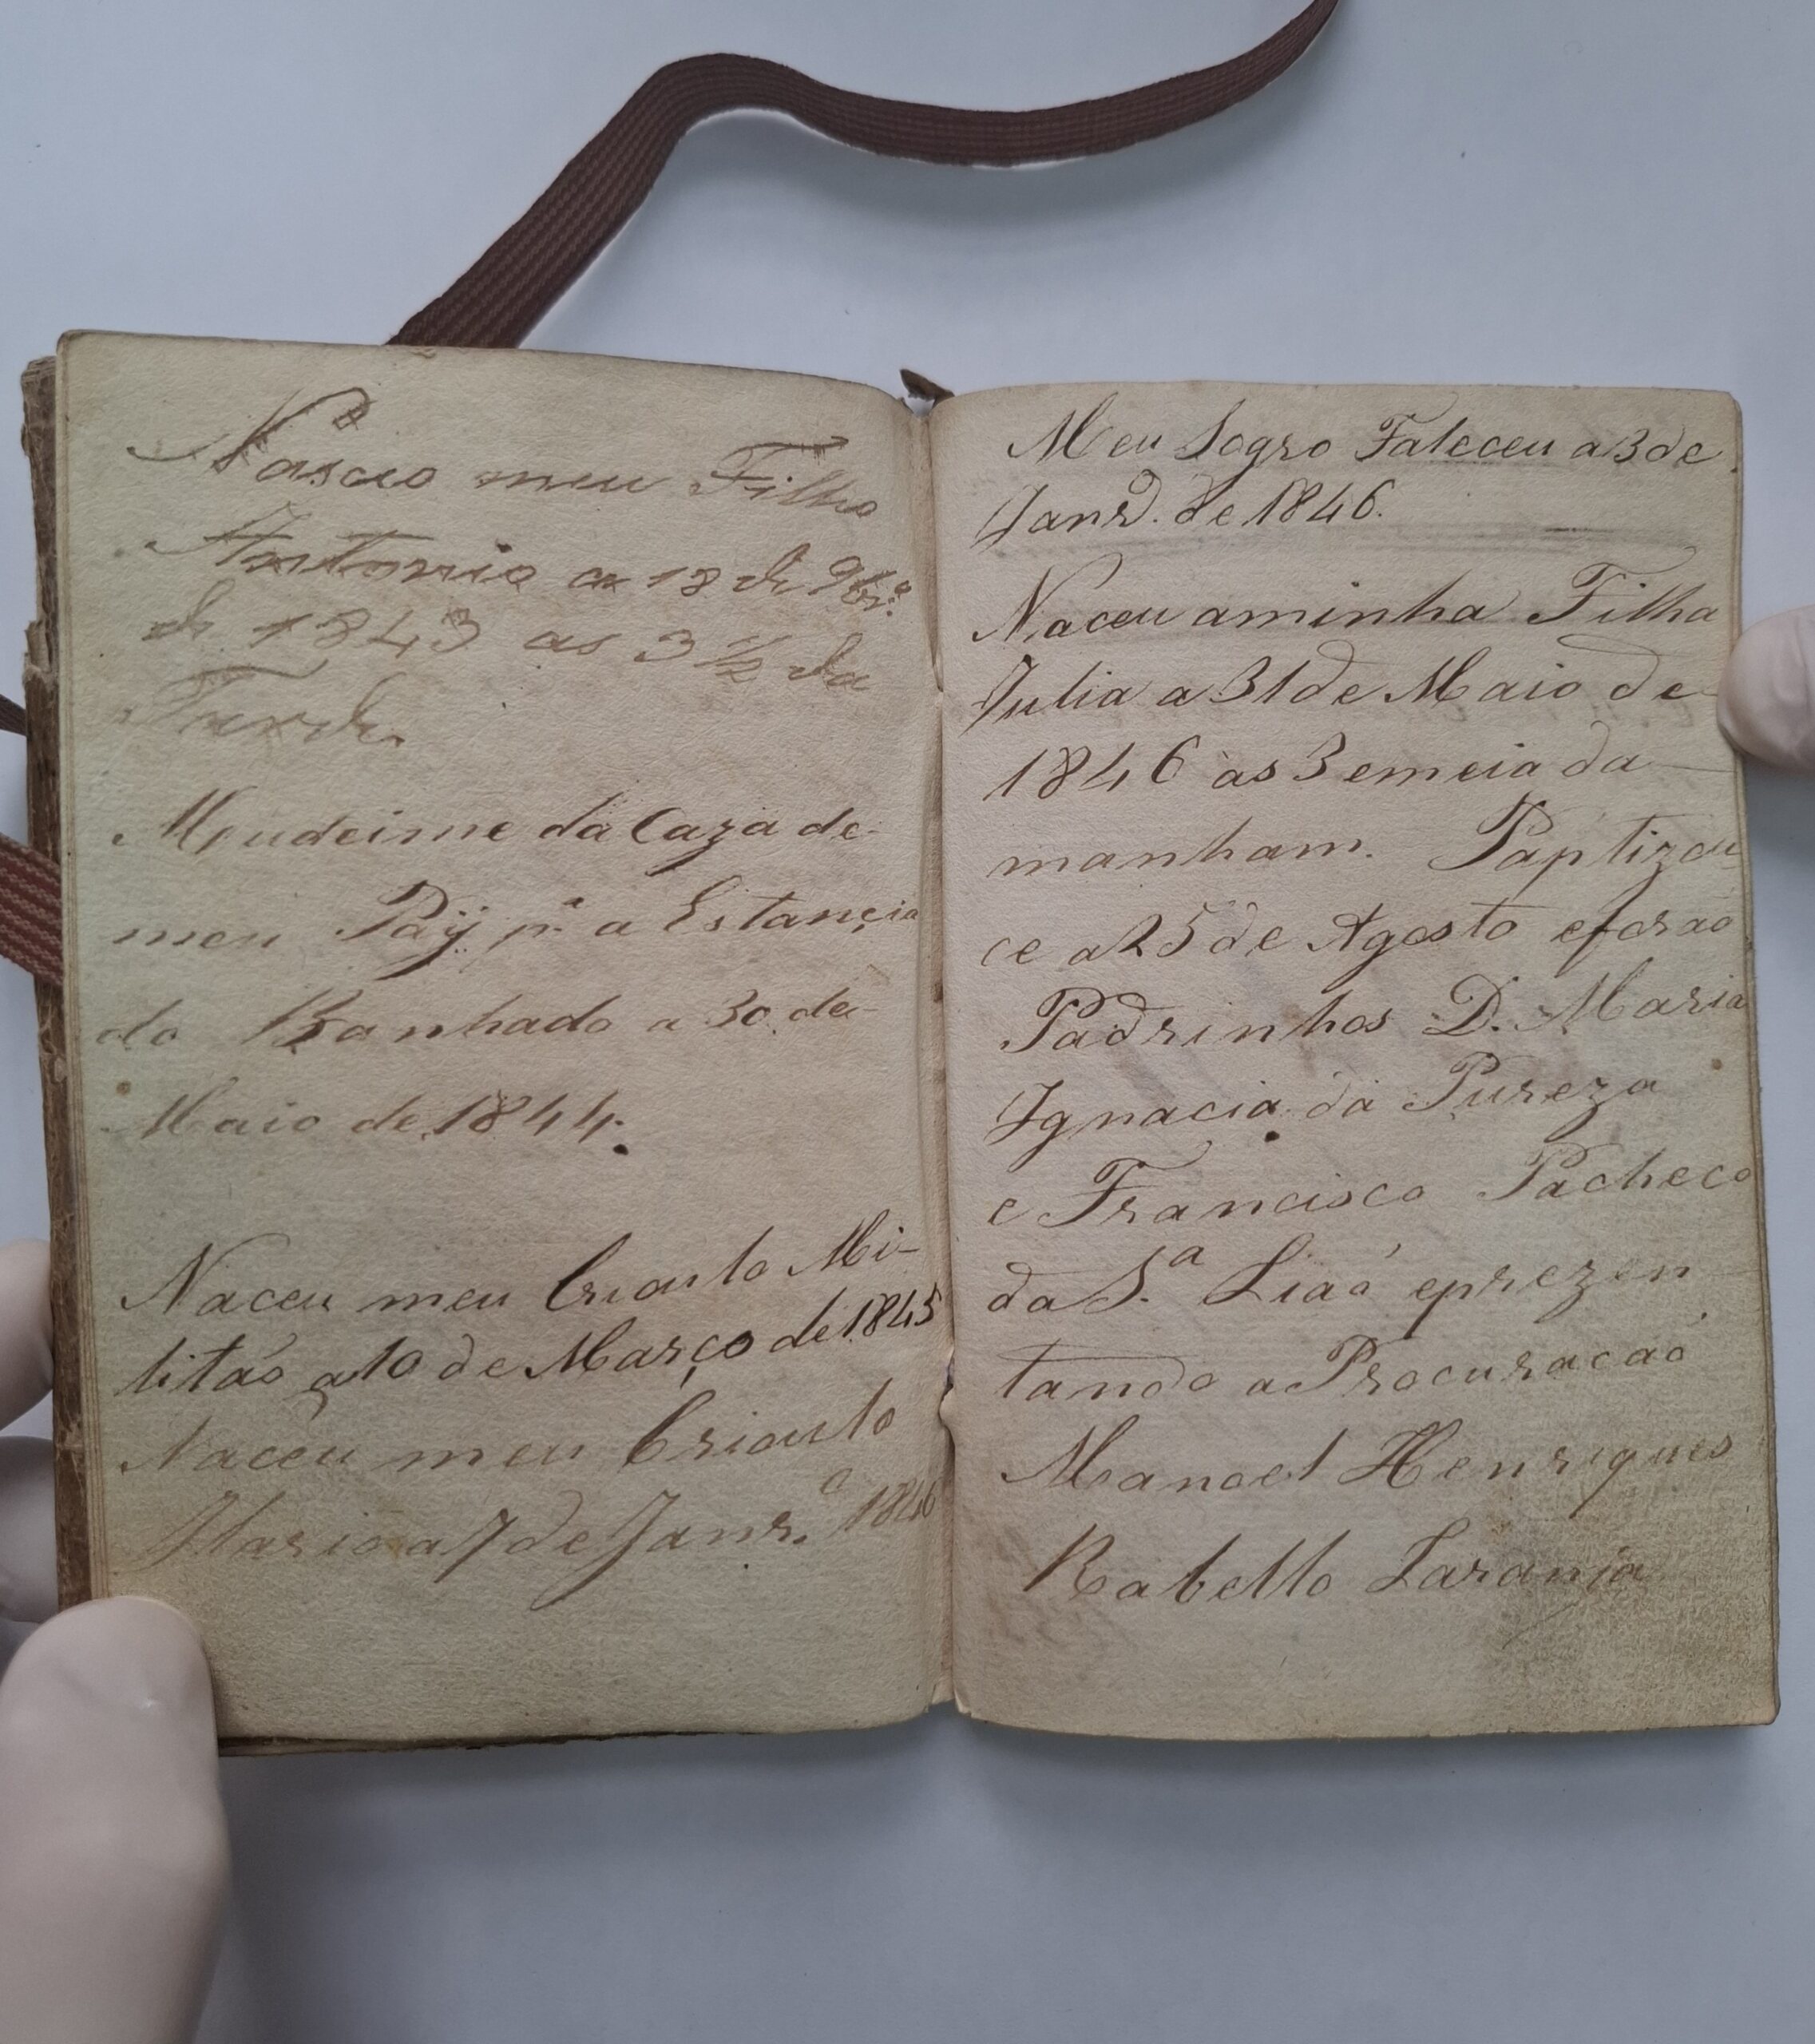 Nasceo meu Filho
Antonio a 18 de 9br.º
de 1843 as 3 ½ da
Tarde
Mudeime da Caza de
meu Paÿ pª a Estancia
do Banhado a 30 de
Maio de 1844.
Naceu meu Crioulo Mi-
litaó a 10 de Março de 1845
Naceu meu Crioulo
Ilario a 7 de Janr.º 1846
Meu Sogro Faleceu a 3 de
Janrº. de 1846.
Naceu aminha Filha
Julia a 31 de Maio de
1846 às 3 emeia da
manham. Baptizou
ce a 25 de Agosto eforaó
Padrinhos D. Maria
Ignacia da Pureza
e Francisco Pacheco
da S.ª Liaó eprezen
tando a Procuracaó
Manoel Henriques
Rabello Laranja